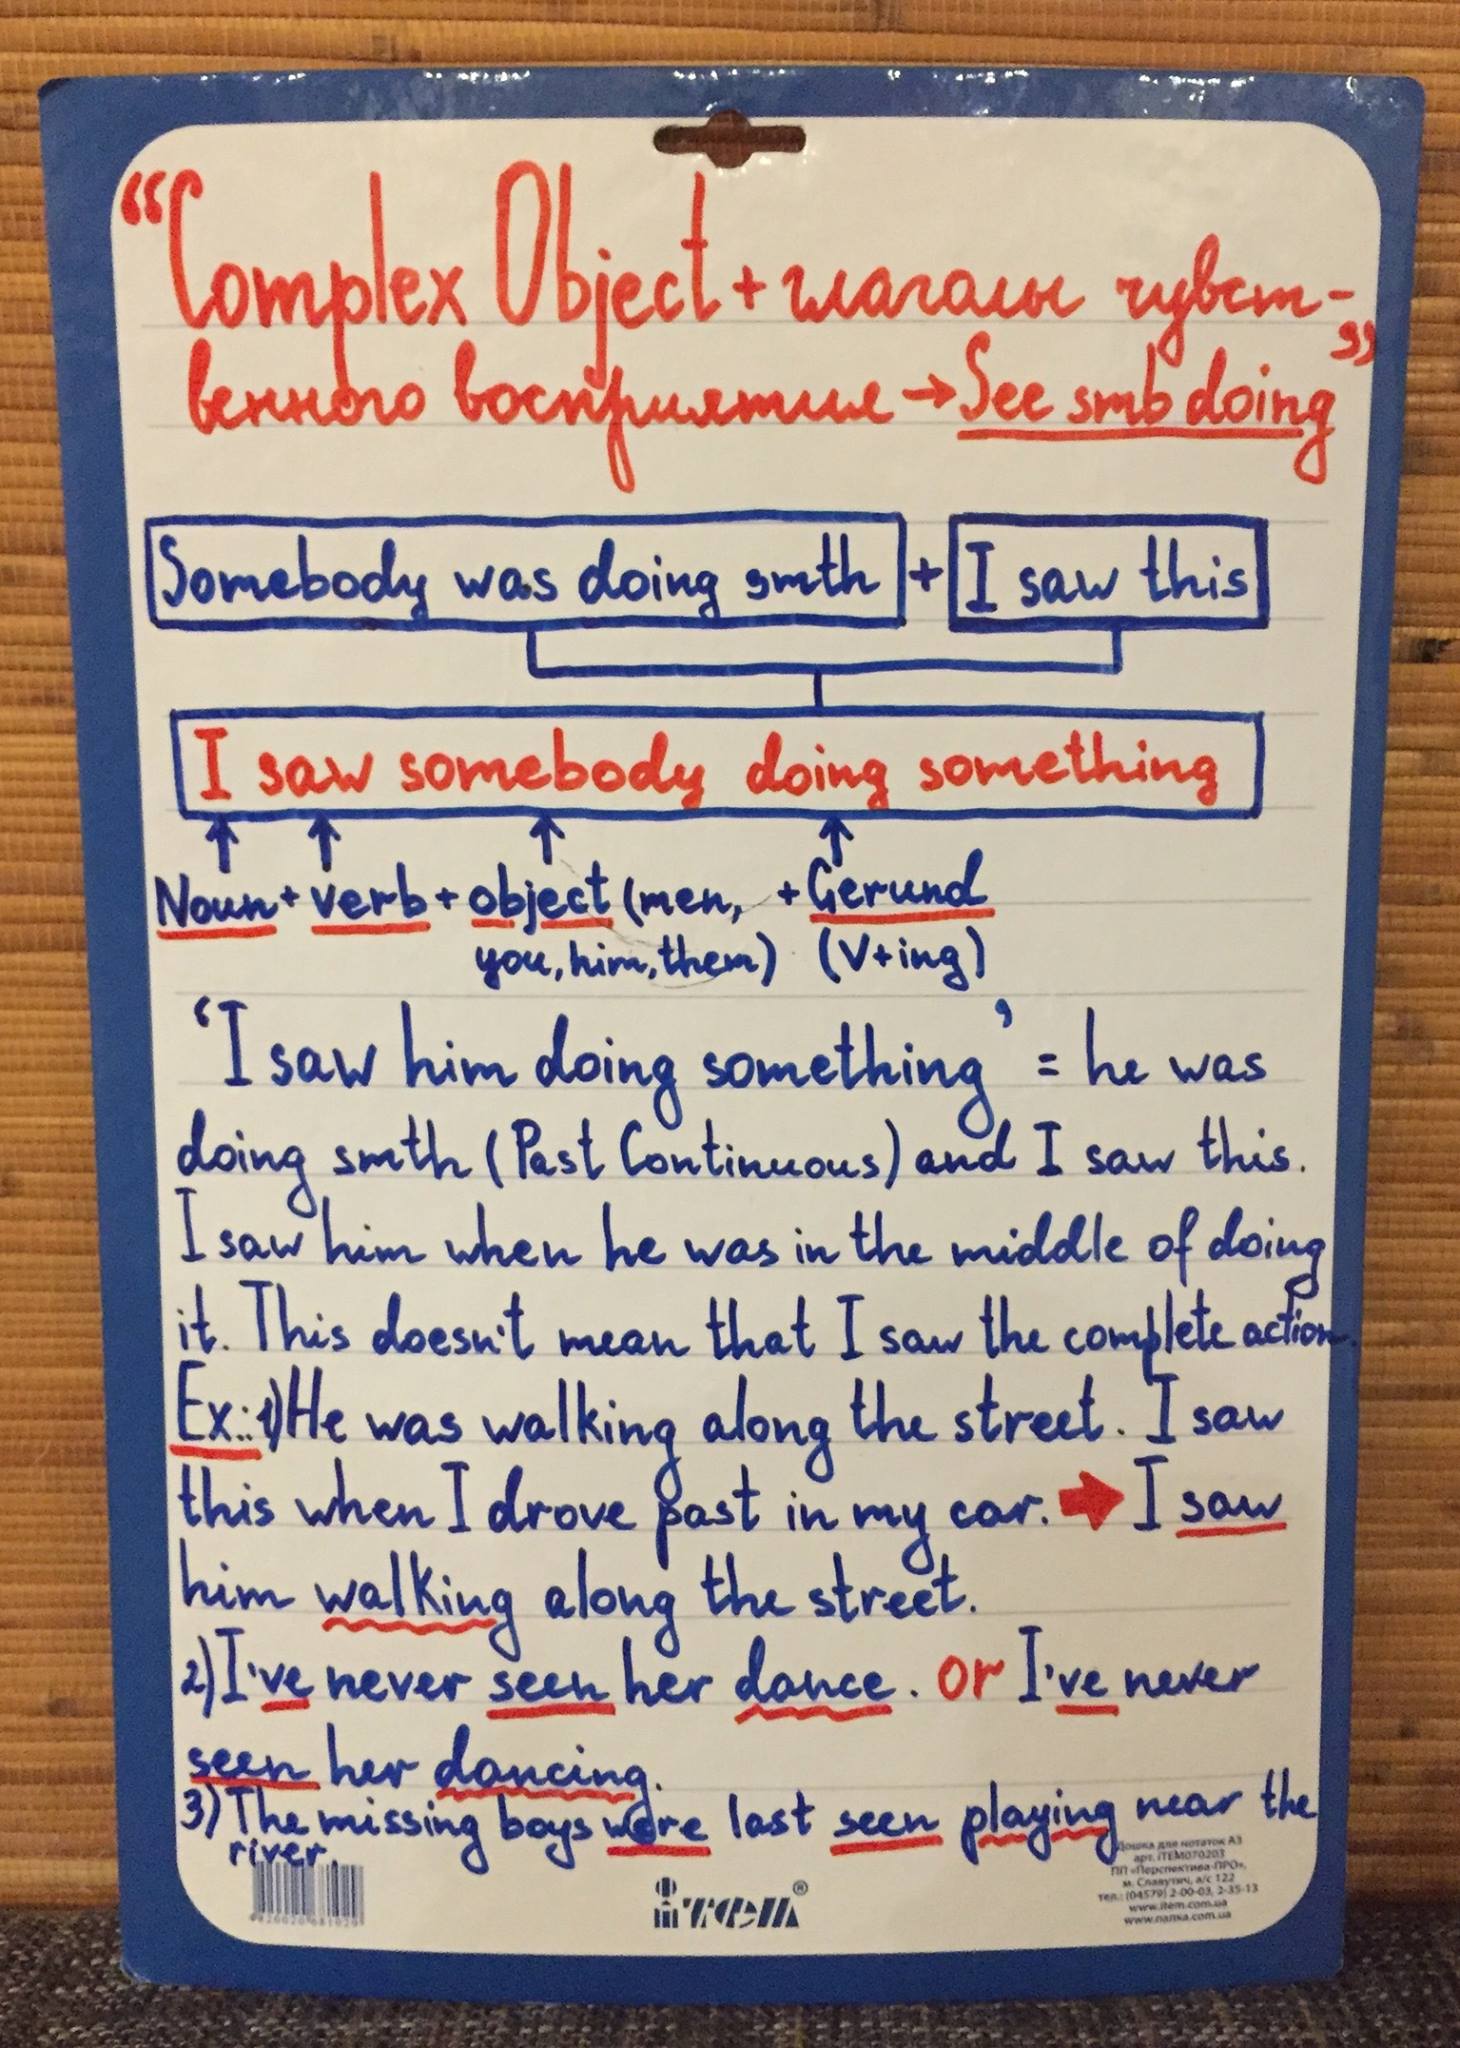 “Complex Object + глаголы чувст-
венного восприятия → See smb doing”
Somebody was doing smth + I saw this
I saw somebody doing something
Noun + verb + object (men, + Gerund
you, him, them) (V+ing)
‘I saw him doing something’ = he was
doing smth (Past Continuous) and I saw this.
I saw him when he was in the middle of doing
it. This doesn't mean that I saw the complete action.
Ex.: 1) He was walking along the street. I saw
this when I drove past in my car. ➡ I saw
him walking along the street.
2) I've never seen her dance. or I've never
seen her dancing.
3) The missing boys were last seen playing near the
river.
Дошка для нотаток А3
арт. iTEM070203
ПП «Перспектива-ПРО»,
м. Славутич, а/с 122
тел.: (04579) 2-00-03, 2-35-13
www.item.com.ua
www.папка.com.ua
iтем®